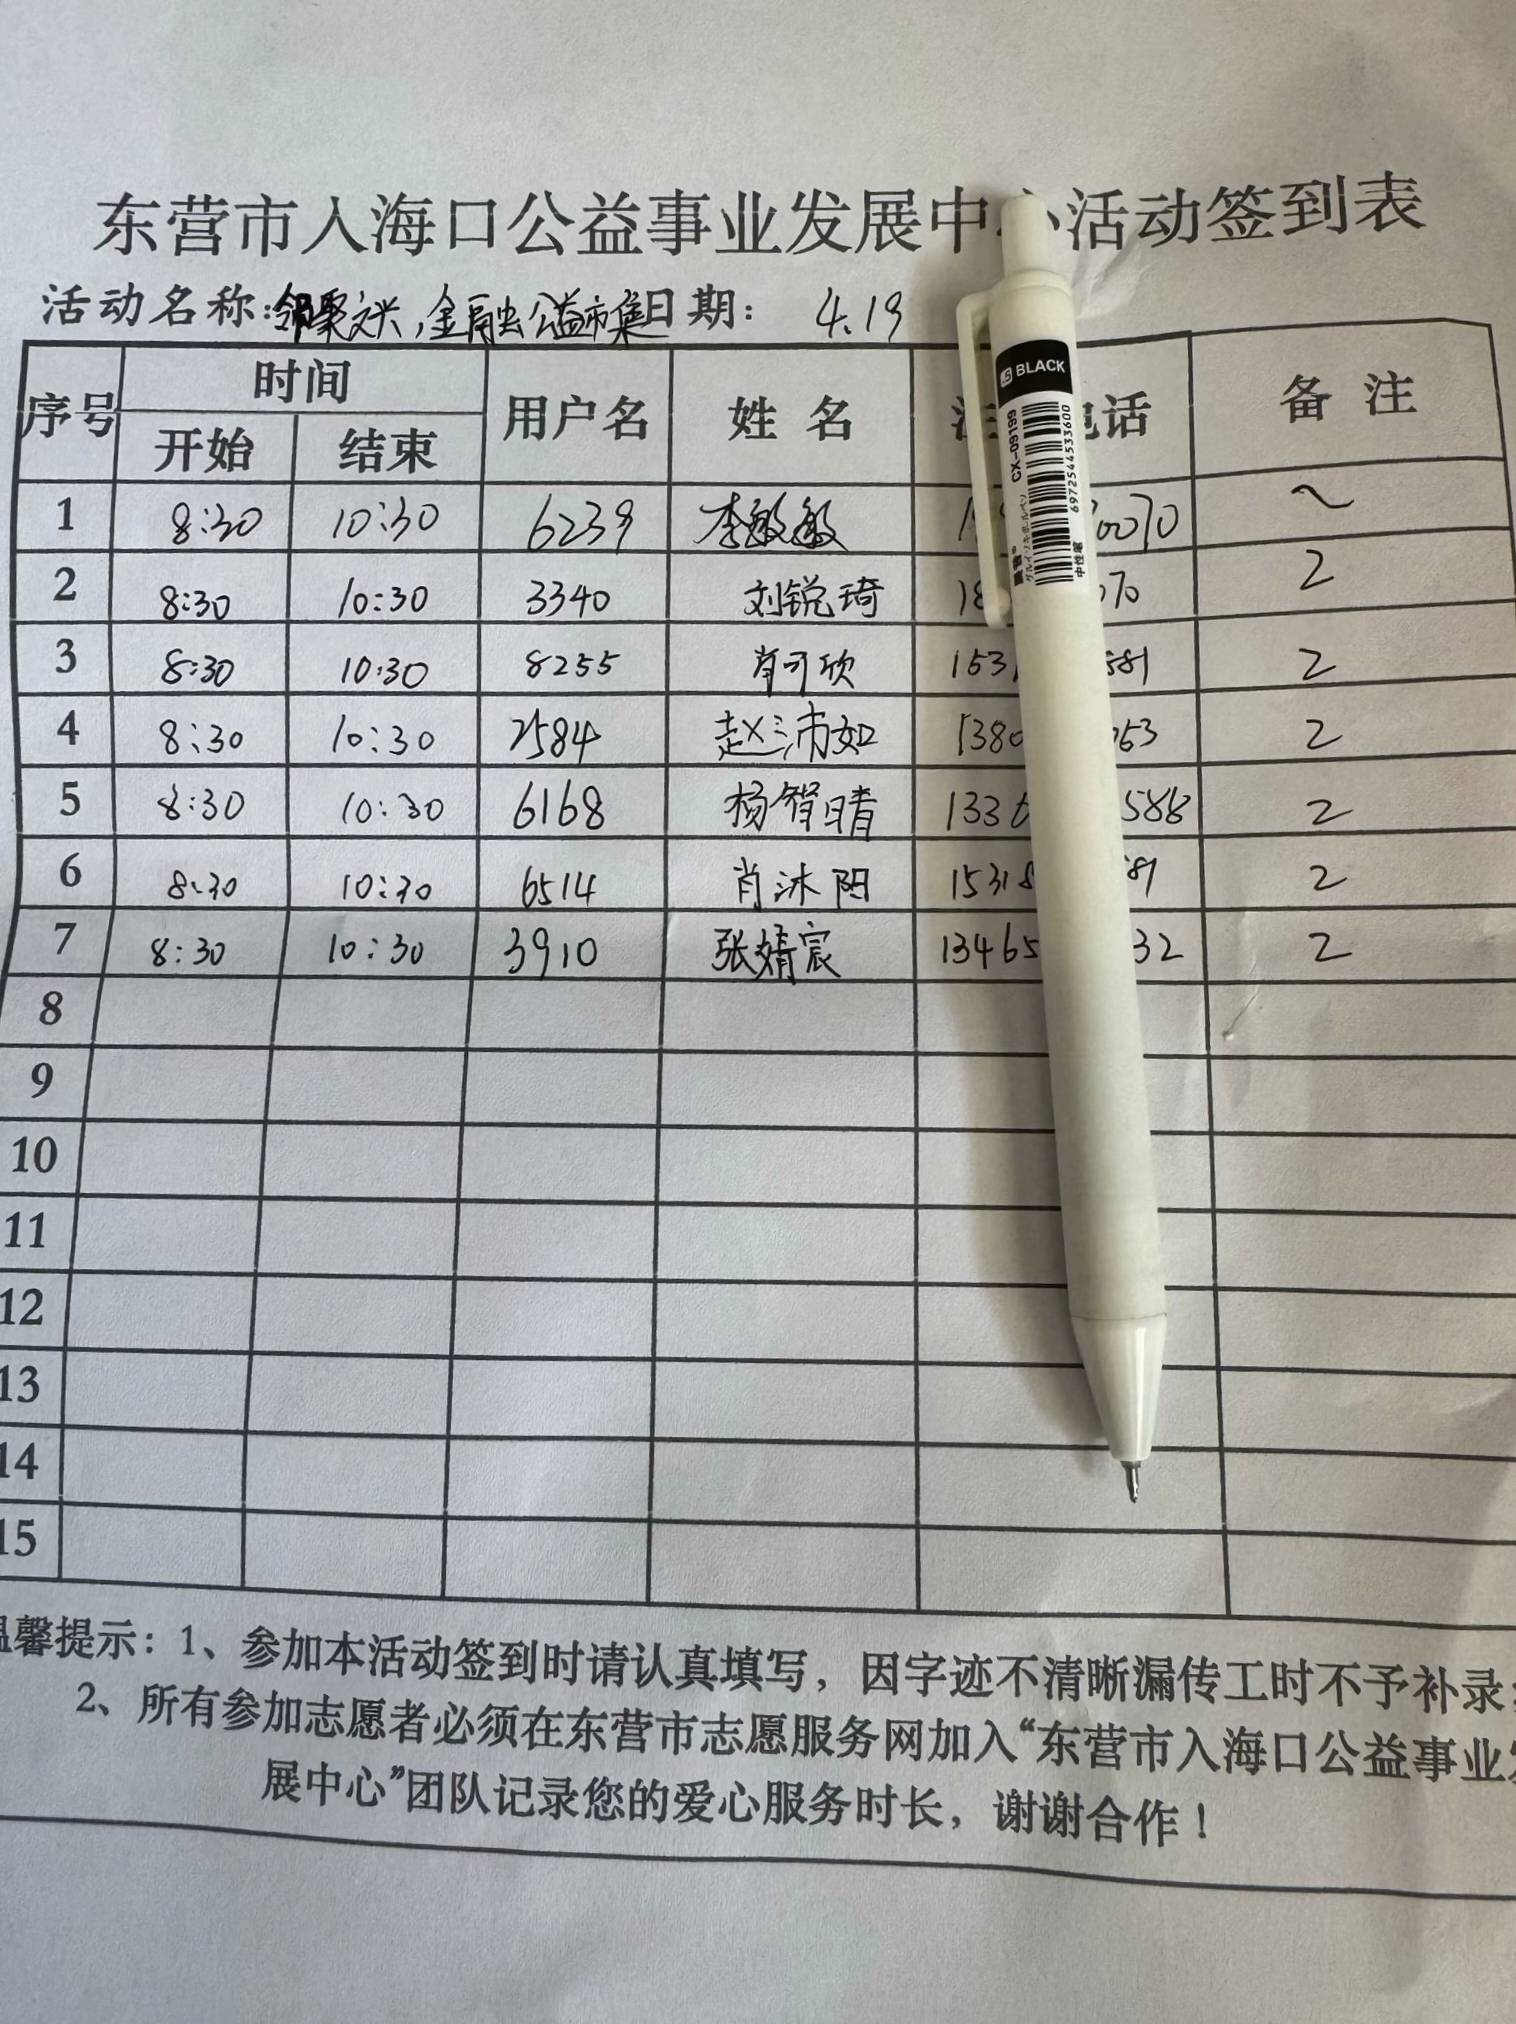 东营市入海口公益事业发展中心活动签到表
活动名称:邻聚文兴,金融公益市集 日期: 4.19
序号 时间 用户名 姓名 电话 备注
开始 结束
1 8:30 10:30 6239 李敏敏 0070 2
2 8:30 10:30 3340 刘锐琦 18 070 2
3 8:30 10:30 8255 肖可欣 1531 581 2
4 8:30 10:30 2584 赵沛如 1380 063 2
5 8:30 10:30 6168 杨智晴 1336 588 2
6 8:30 10:30 6514 肖沐阳 15318 81 2
7 8:30 10:30 3910 张婧宸 13465 32 2
8
9
10
11
12
13
14
15
温馨提示:1、参加本活动签到时请认真填写,因字迹不清晰漏传工时不予补录
2、所有参加志愿者必须在东营市志愿服务网加入“东营市入海口公益事业发
展中心”团队记录您的爱心服务时长,谢谢合作!
BLACK
CX-09199
6972544533600
中性笔